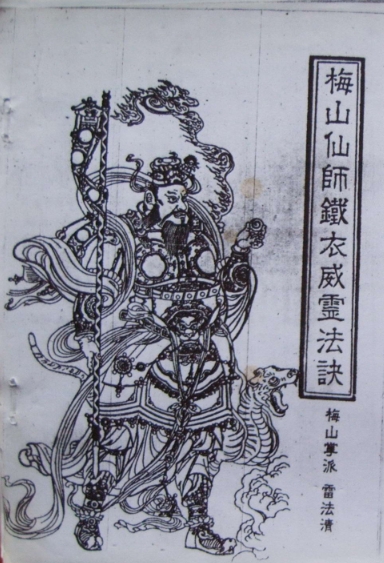 梅山仙師鐵衣威靈法訣
梅山掌派 雷法清